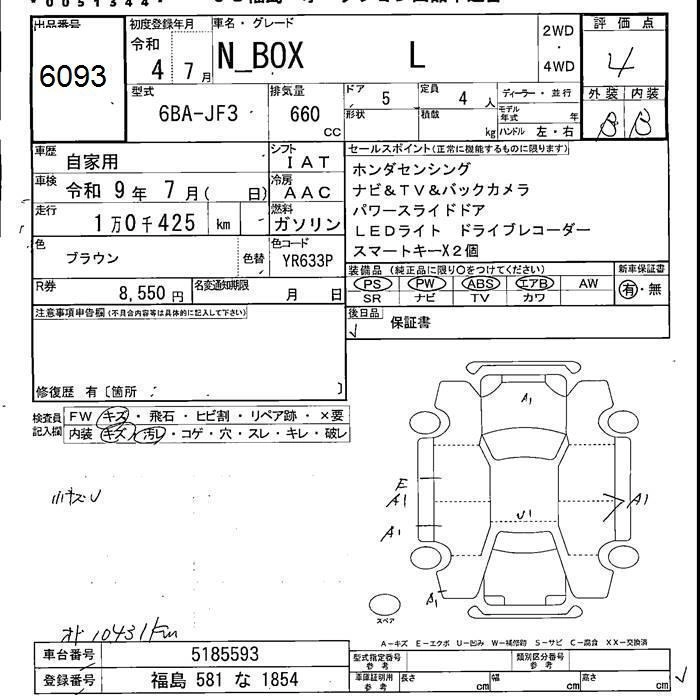 00513444
出品番号
6093
初度登録年月
令和
4 7 月
車名・グレード
N_BOX L
2WD
・
4WD
評価点
4
外装 内装
B B
型式
6BA-JF3
排気量
660
CC
ドア
5
定員
4 人
形状
積載
kg
ディーラー・並行
モデル年式 年
ハンドル 左・右
車歴 自家用
シフト
IAT
車検 令和 9 年 7 月( 日)
冷房
AAC
走行 1万0千425 km
燃料
ガソリン
色
ブラウン
色替
色コード
YR633P
R券
8,550 円
名変通知期限
月 日
セールスポイント(正常に機能するものに限ります)
ホンダセンシング
ナビ&TV&バックカメラ
パワースライドドア
LEDライト ドライブレコーダー
スマートキーX2個
装備品(純正品に限り○をつけてください)
PS PW ABS エアB AW
SR ナビ TV カワ
新車保証書
有・無
注意事項申告欄(不具合内容等は具体的に記入して下さい)
後日品
保証書
修復歴 有〔箇所 〕
検査員記入欄
FW キズ・飛石・ヒビ割・リペア跡・×要
内装 キズ・汚レ・コゲ・穴・スレ・キレ・破レ
小キズU
A1
E
A1
A1
U1
A1
B1
スペア
オド 10431km
A-キズ E-エクボ U-凹み W-補修跡 S-サビ C-腐食 XX-交換済
車台番号 5185593
型式指定番号 参考
類別区分番号 参考
登録番号 福島 581 な 1854
車庫証明用 参考
長さ cm
幅 cm
高さ cm